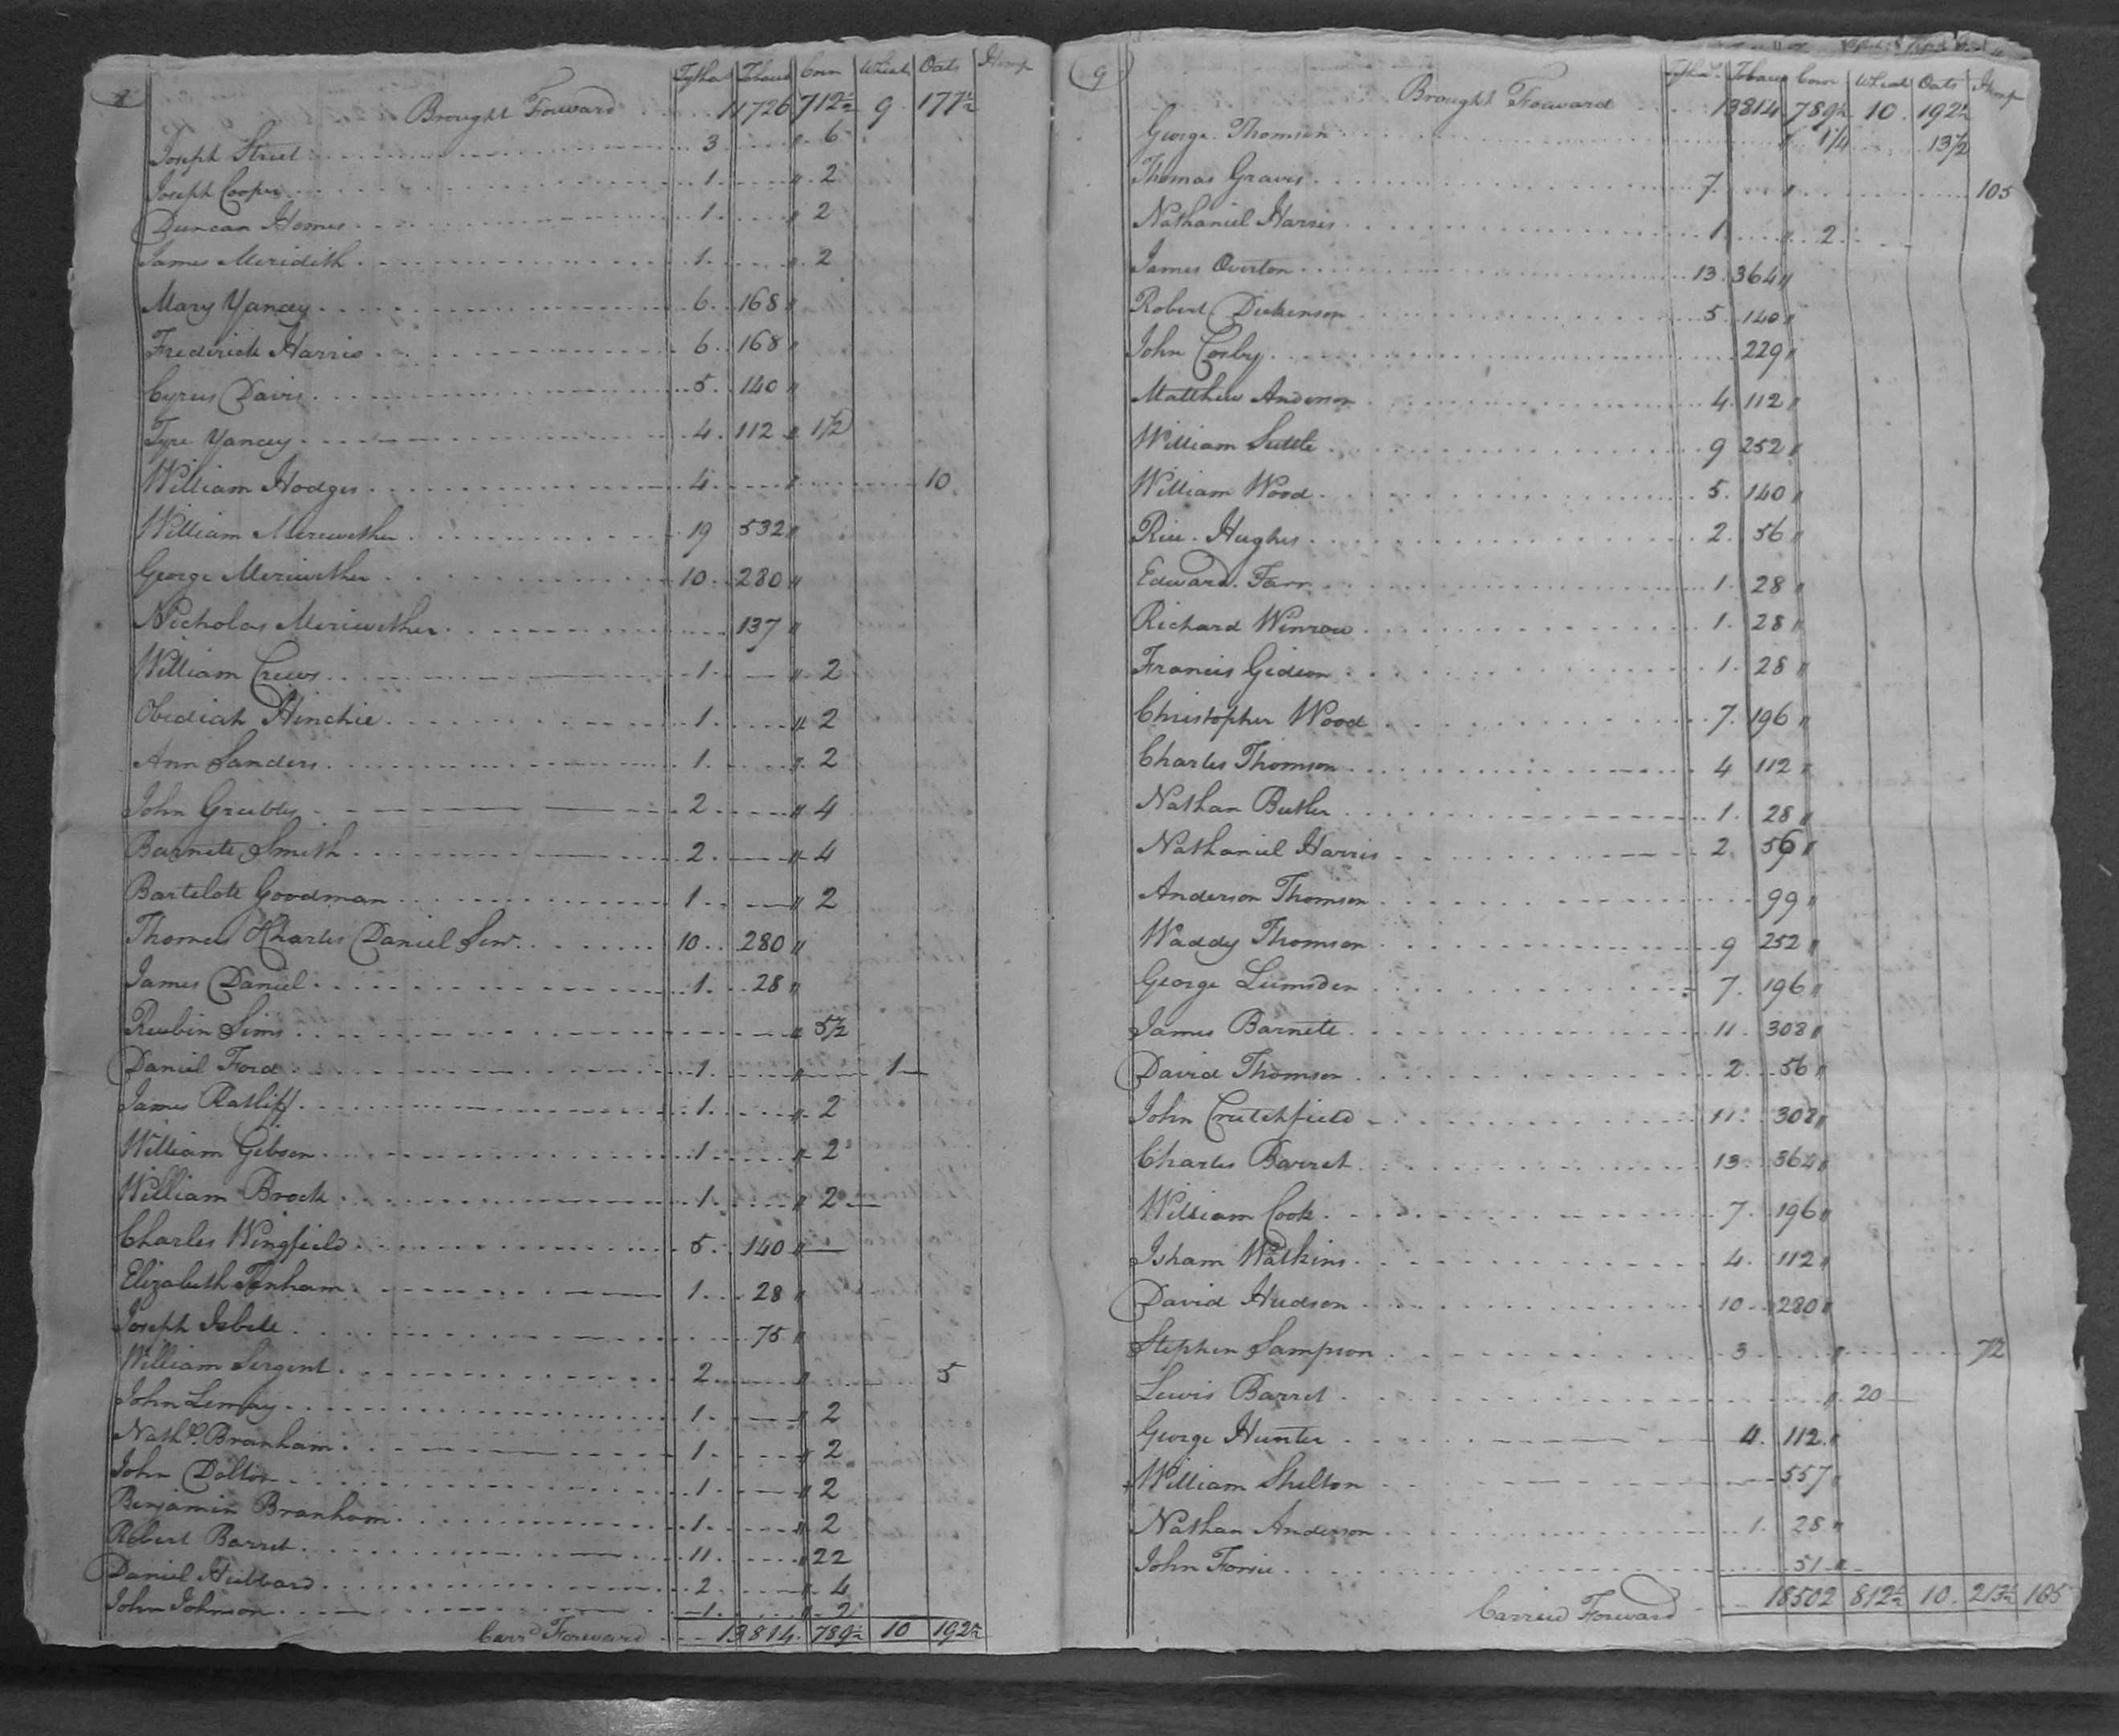 8
Tythes Tobacco Corn Wheat Oats Hemp
Brought Forward 11726 712½ 9 177½
Joseph Street 3 " 6
Joseph Cooper 1 " 2
Duncan Homes 1 " 2
James Meridith 1 " 2
Mary Yancey 6 168 "
Frederick Harris 6 168 "
Cyrus Davis 5 140 "
Tyre Yancey 4 112 " 1½
William Hodges 4 " 10
William Meriwether 19 532 "
George Meriwether 10 280 "
Nicholas Meriwether 137 "
William Crews 1 " 2
Obediah Hinchie 1 " 2
Ann Sanders 1 " 2
John Grubbs 2 " 4
Barnett Smith 2 " 4
Bartelott Goodman 1 " 2
Thomas Charles Daniel Senr. 10 280 "
James Daniel 1 28 "
Reubin Sims " 5½
Daniel Ford 1 " 1
James Ratliff 1 " 2
William Gibson 1 " 2
William Brock 1 " 2
Charles Wingfield 5 140 "
Elizabeth 1 28 "
Joseph Isbell 75 "
William Sergent 2 " 5
John Lemay 1 " 2
Nathl. Branham 1 " 2
John Dalton 1 " 2
Benjamin Branham 1 " 2
Robert Barret 11 " 22
Daniel Hubbard 2 " 4
John Johnson 1 " 2
Carrd. Forward 13814 789½ 10 192½
9
Tythes Tobacco Corn Wheat Oats Hemp
Brought Forward 13814 789½ 10 192½
George Thomson " 1¼ 13½
Thomas Graves 7 " 105
Nathaniel Harris 1 " 2
James Overton 13 364 "
Robert Dickenson 5 140 "
John Cosby 229 "
Matthew Anderson 4 112 "
William Suttle 9 252 "
William Wood 5 140 "
Rice Hughes 2 56 "
Edward Farr 1 28 "
Richard Winrow 1 28 "
Francis Gideon 1 28 "
Christopher Wood 7 196 "
Charles Thomson 4 112 "
Nathan Butler 1 28 "
Nathaniel Harris 2 56 "
Anderson Thomson 99 "
Waddy Thomson 9 252 "
George Lumsden 7 196 "
James Barnett 11 308 "
David Thomson 2 56 "
John Crutchfield 11 308 "
Charles Barret 13 364 "
William Cook 7 196 "
Isham Watkins 4 112 "
David Hudson 10 280 "
Stephen Sampson 3 " 7½
Lewis Barret " 20
George Hunter 4 112 "
William Shelton 557 "
Nathan Anderson 1 28 "
John Forsie 51 "
Carried Forward 18502 812½ 10 213½ 105